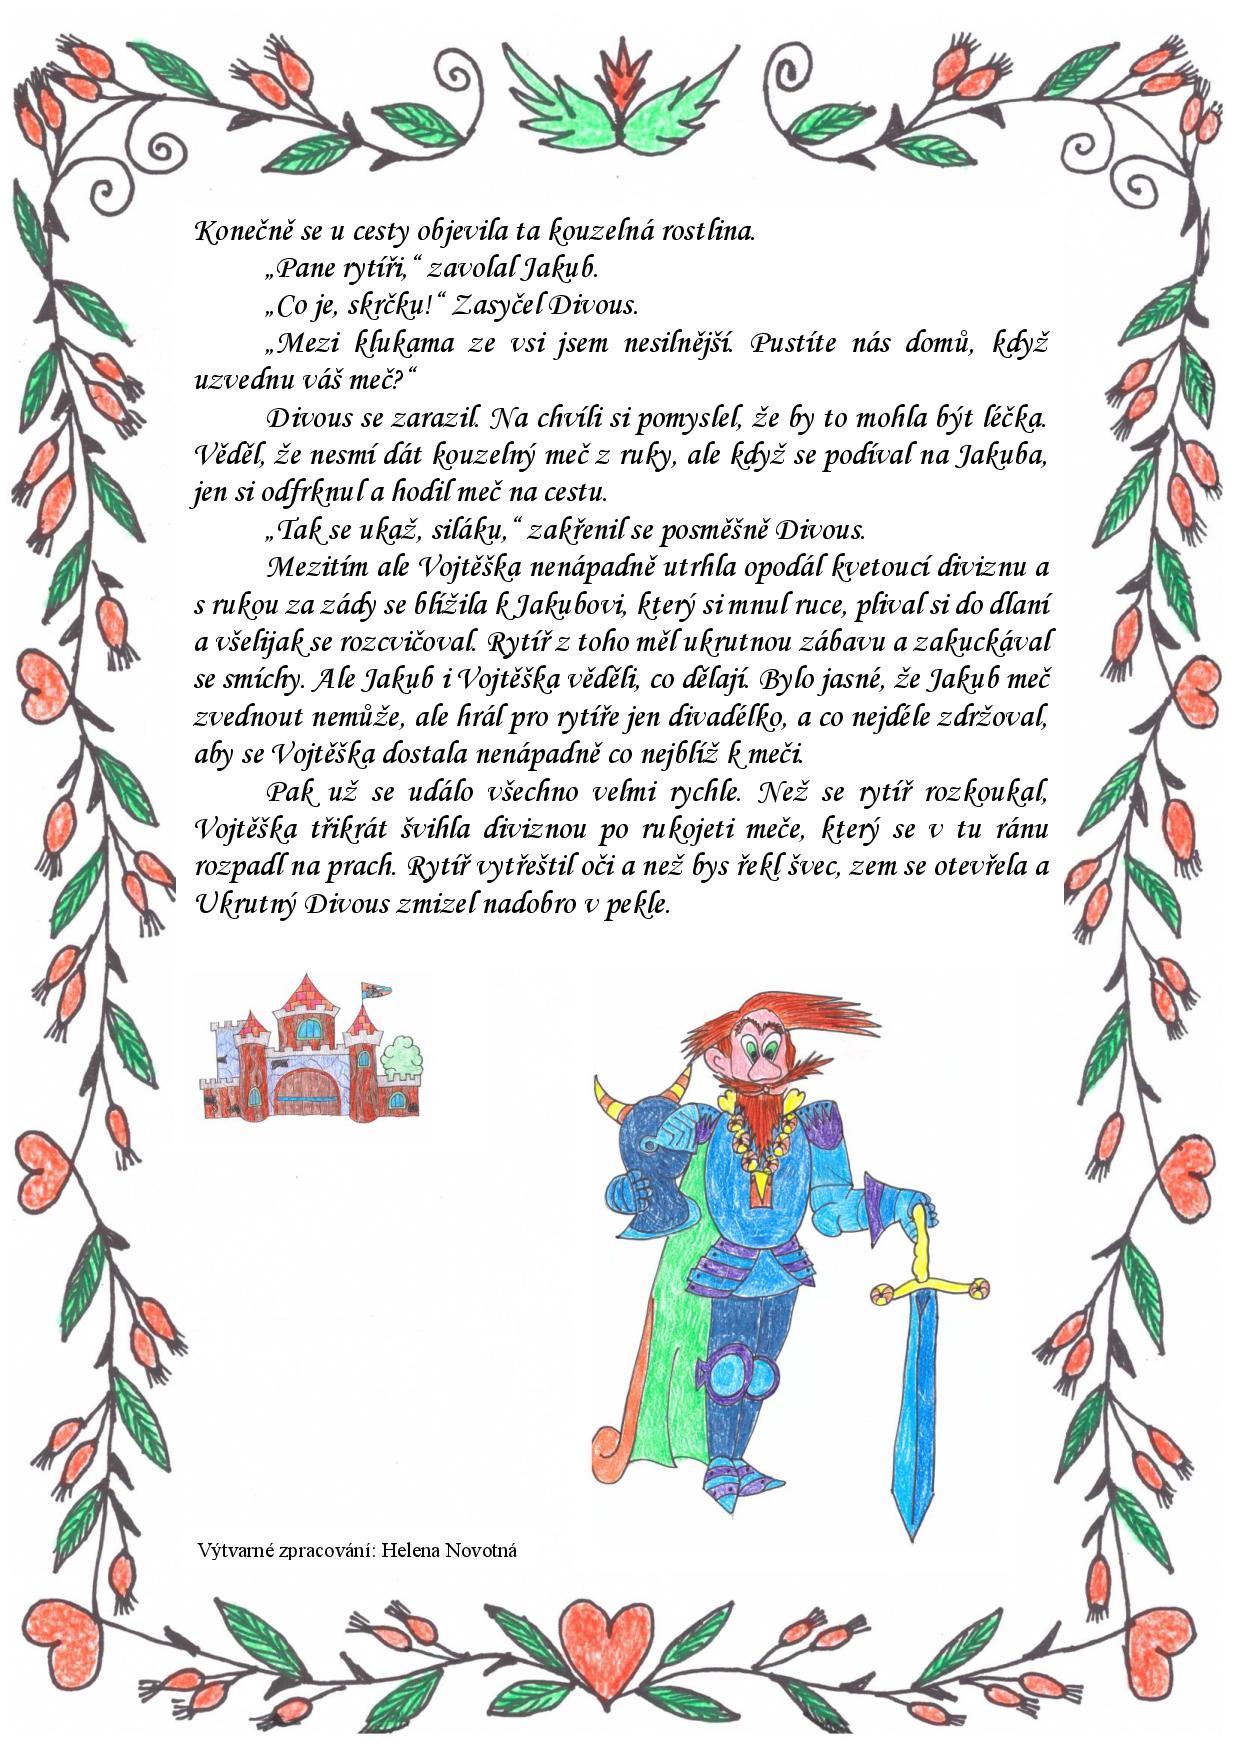 Konečně se u cesty objevila ta kouzelná rostlina.
„Pane rytíři,“ zavolal Jakub.
„Co je, skrčku!“ Zasyčel Divous.
„Mezi klukama ze vsi jsem nesilnější. Pustíte nás domů, když
uzvednu váš meč?“
Divous se zarazil. Na chvíli si pomyslel, že by to mohla být léčka.
Věděl, že nesmí dát kouzelný meč z ruky, ale když se podíval na Jakuba,
jen si odfrknul a hodil meč na cestu.
„Tak se ukaž, siláku,“ zakřenil se posměšně Divous.
Mezitím ale Vojtěška nenápadně utrhla opodál kvetoucí diviznu a
s rukou za zády se blížila k Jakubovi, který si mnul ruce, plival si do dlaní
a všelijak se rozcvičoval. Rytíř z toho měl ukrutnou zábavu a zakuckával
se smíchy. Ale Jakub i Vojtěška věděli, co dělají. Bylo jasné, že Jakub meč
zvednout nemůže, ale hrál pro rytíře jen divadélko, a co nejdéle zdržoval,
aby se Vojtěška dostala nenápadně co nejblíž k meči.
Pak už se událo všechno velmi rychle. Než se rytíř rozkoukal,
Vojtěška třikrát švihla diviznou po rukojeti meče, který se v tu ránu
rozpadl na prach. Rytíř vytřeštil oči a než bys řekl švec, zem se otevřela a
Ukrutný Divous zmizel nadobro v pekle.
Výtvarné zpracování: Helena Novotná